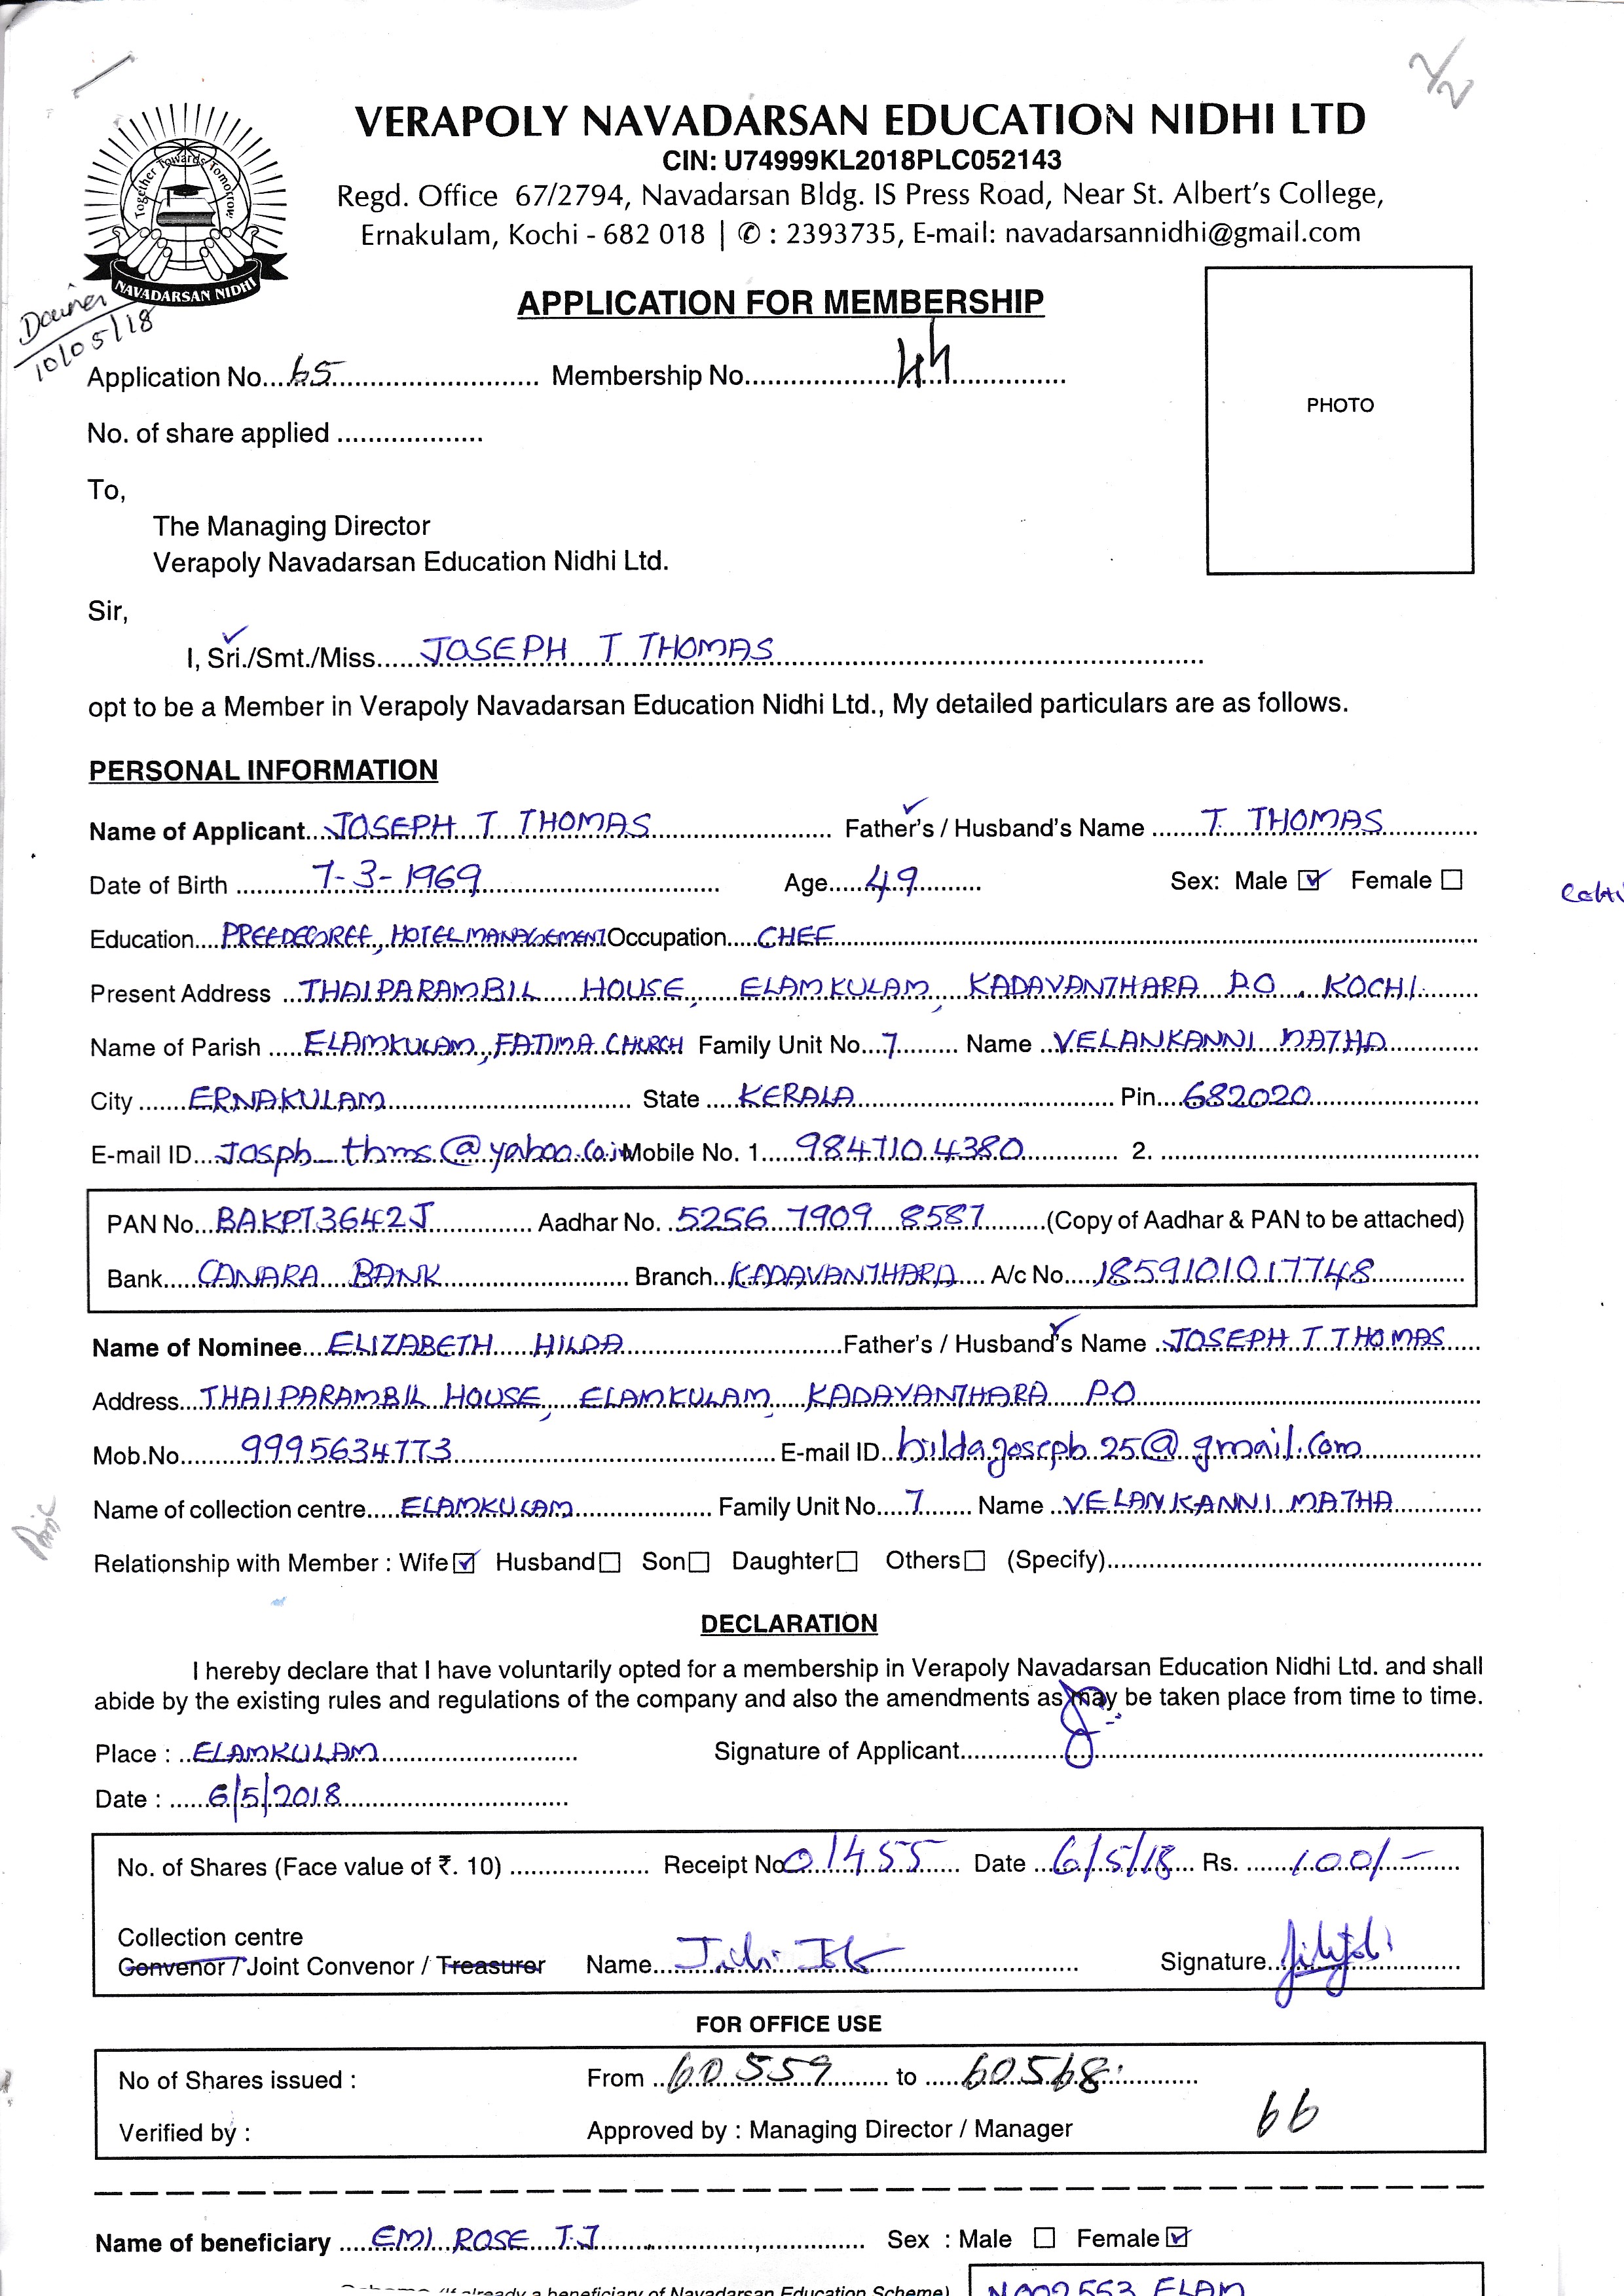 VERAPOLY NAVADARSAN EDUCATION NIDHI LTD
CIN: U74999KL2018PLC052143
Regd. Office 67/2794, Navadarsan Bldg. IS Press Road, Near St. Albert's College,
Ernakulam, Kochi - 682 018 | ✆ : 2393735, E-mail: navadarsannidhi@gmail.com
Together Towards Tomorrow
NAVADARSAN NIDHI
10/05/18
APPLICATION FOR MEMBERSHIP
PHOTO
Application No....65.... Membership No....44....
No. of share applied ....
To,
The Managing Director
Verapoly Navadarsan Education Nidhi Ltd.
Sir,
I, Sri./Smt./Miss....JOSEPH T THOMAS....
opt to be a Member in Verapoly Navadarsan Education Nidhi Ltd., My detailed particulars are as follows.
PERSONAL INFORMATION
Name of Applicant....JOSEPH T THOMAS.... Father's / Husband's Name ....T. THOMAS....
Date of Birth ....7-3-1969.... Age....49.... Sex: Male ☑ Female ☐
Education....PREEDEGREE, HOTEL MANAGEMENT Occupation....CHEF....
Present Address ....THAIPARAMBIL HOUSE, ELAMKULAM, KADAVANTHARA P.O. KOCHI....
Name of Parish ....ELAMKULAM, FATIMA CHURCH Family Unit No....7.... Name ....VELANKANNI MATHA....
City ....ERNAKULAM.... State ....KERALA.... Pin....682020....
E-mail ID....Josph_thms@yahoo.co.in Mobile No. 1....9847104380.... 2. ....
PAN No....BAKPT3642J.... Aadhar No. 5256 7909 8587....(Copy of Aadhar & PAN to be attached)
Bank....CANARA BANK.... Branch..KADAVANTHARA.... A/c No....1859101017748....
Name of Nominee....ELIZABETH HILDA....Father's / Husband's Name .JOSEPH T THOMAS....
Address..THAIPARAMBIL HOUSE, ELAMKULAM, KADAVANTHARA P.O....
Mob.No....9995634773.... E-mail ID..hildajoseph.25@gmail.com....
Name of collection centre....ELAMKULAM.... Family Unit No....7.... Name ..VELANKANNI MATHA....
Relationship with Member : Wife ☑ Husband ☐ Son ☐ Daughter ☐ Others ☐ (Specify)....
DECLARATION
I hereby declare that I have voluntarily opted for a membership in Verapoly Navadarsan Education Nidhi Ltd. and shall
abide by the existing rules and regulations of the company and also the amendments as may be taken place from time to time.
Place : ..ELAMKULAM.... Signature of Applicant....
Date : ....6/5/2018....
No. of Shares (Face value of ₹. 10) .... Receipt No 01455.... Date ..6/5/18.... Rs. ....100/-....
Collection centre
Convenor / Joint Convenor / Treasurer Name.... Signature....
FOR OFFICE USE
No of Shares issued : From ..60559.... to ....60568....
Verified by : Approved by : Managing Director / Manager 66
Name of beneficiary ....EMI ROSE T.J.... Sex : Male ☐ Female ☑
(If already a beneficiary of Navadarsan Education Scheme)